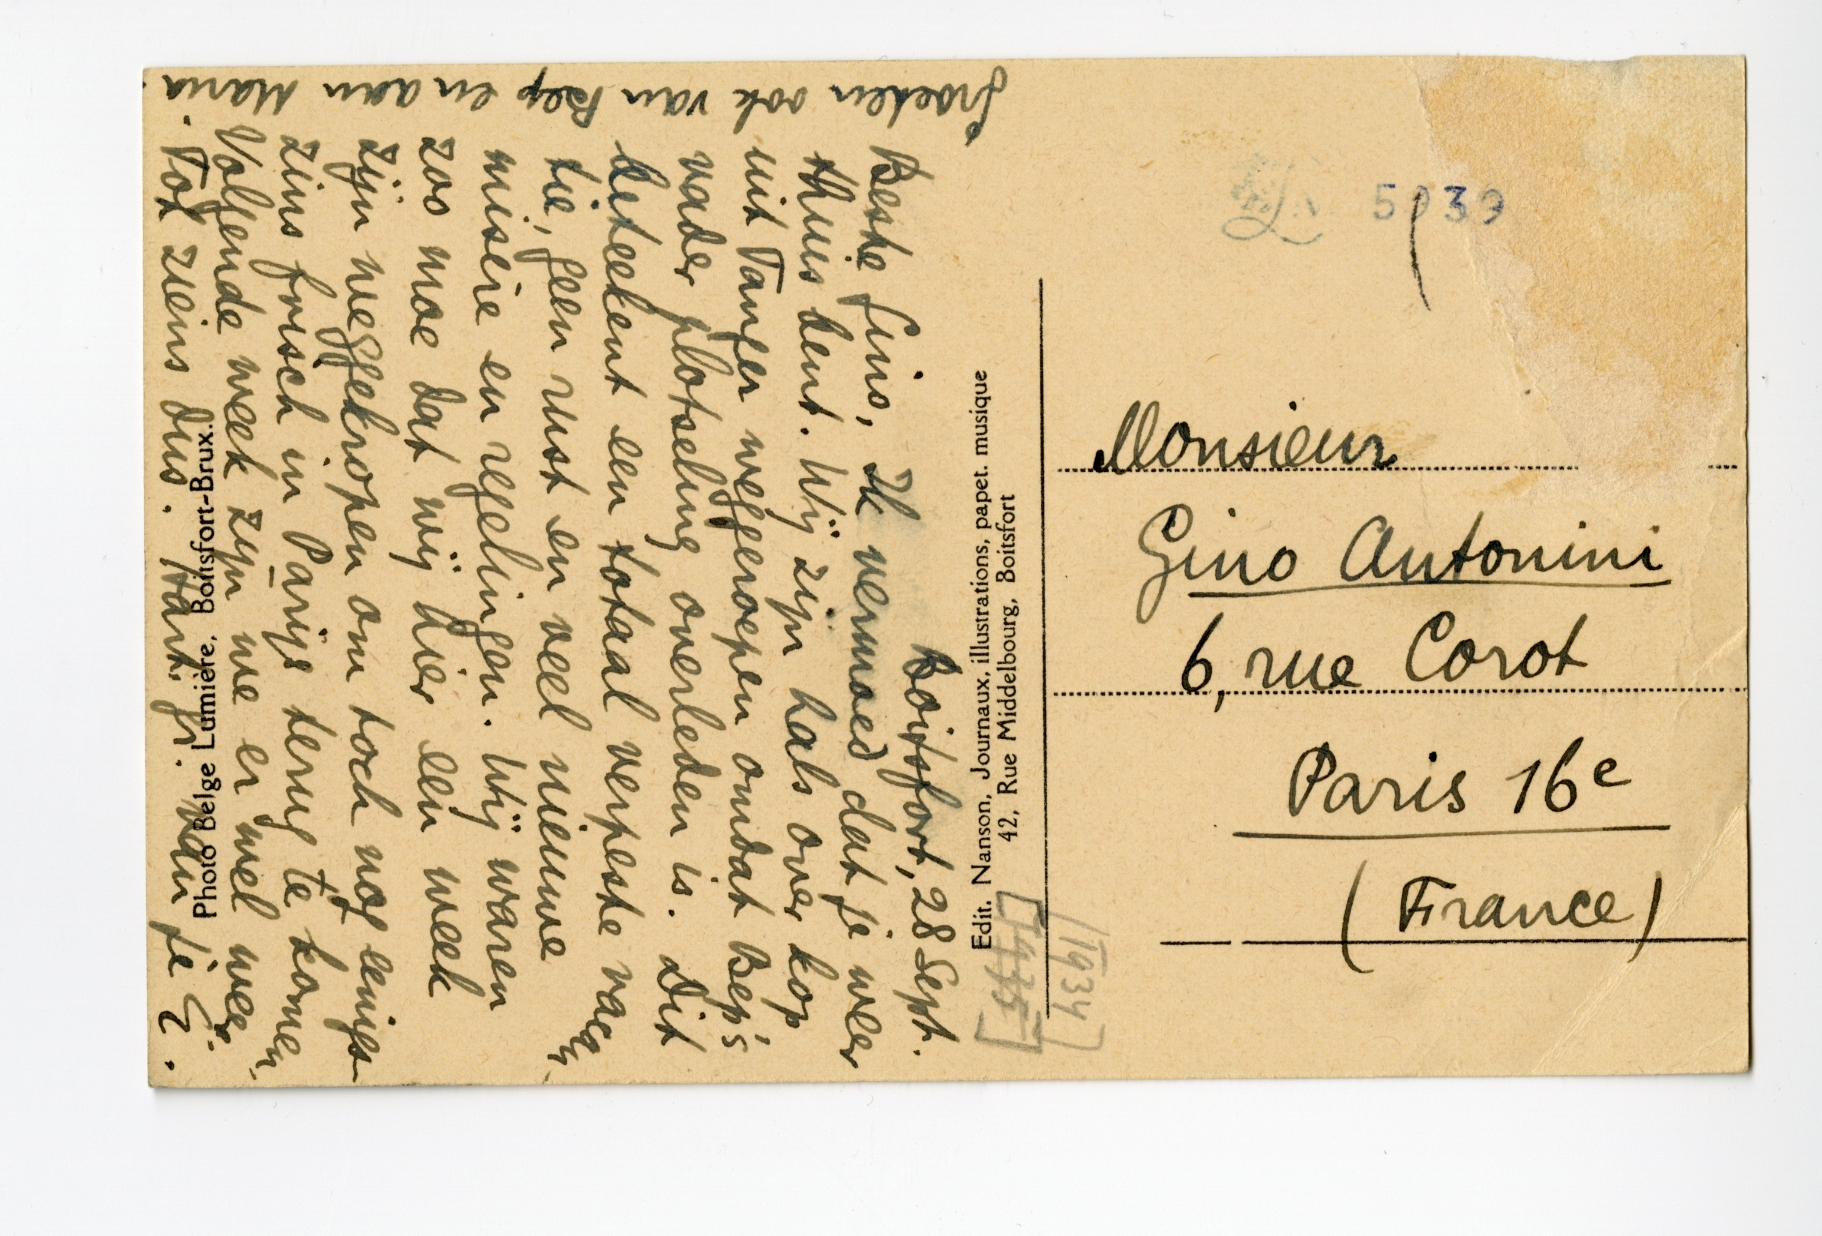 Boitsfort, 28 Sept.
Beste Gino, Ik vermoed dat je weer
thuis bent. Wij zijn hals over kop
uit Tanger weggeroepen omdat Bep's
vader plotseling overleden is. Dit
beteekent een totaal verpeste vacan
tie, geen rust en veel nieuwe
misère en regelingen. Wij waren
zoo moe dat wij hier een week
zijn weggekropen om toch nog eenigs-
zins frisch in Parijs terug te komen.
Volgende week zijn we er wel weer.
Tot ziens dus. Hart. gr. van je E.
Groeten ook van Bep en aan Maria.
Photo Belge Lumière, Boitsfort-Brux.
Edit. Nanson, Journaux, illustrations, papet. musique
42, Rue Middelbourg, Boitsfort
[1935]
[1934]
5939
Monsieur
Gino Antonini
6, rue Corot
Paris 16e
(France)